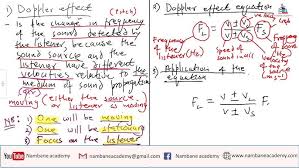 1) Doppler effect
(Pitch)
- Is the change in frequency
of the sound detected by
the listener, because the
sound source and the
listener have different
velocities relative to the
medium of sound propagation
(either the source
moving or listener is moving)
NB:
1) One will be moving
2) One will be stationary
3) Focus on the listener
2) Doppler effect equation
F_L = v ± v_L / v ± v_s F_s
Frequency
of the
listener (Hz)
Speed
of sound in
3) Application of the
equation
F_L = v ± v_L / v ± v_s F_s
YouTube Nambane academy
nambaneacademy@gmail.com
Nambane academy